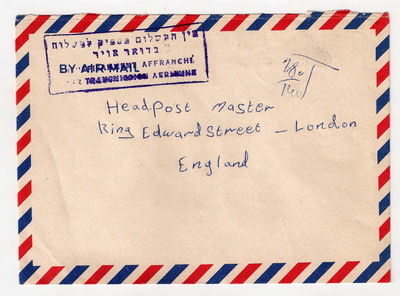 אין התשלום מספיק למשלוח
בדואר אויר
BY AIR MAIL AFFRANCHI
TRANSMISSION AERIENNE
T
Head Post Master
King Edward Street - London
England